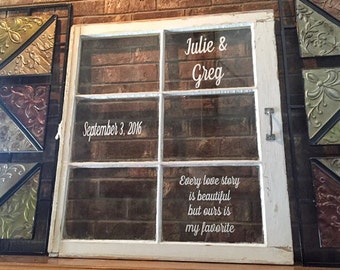 Julie &
Greg
September 3, 2016
Every love story
is beautiful
but ours is
my favorite